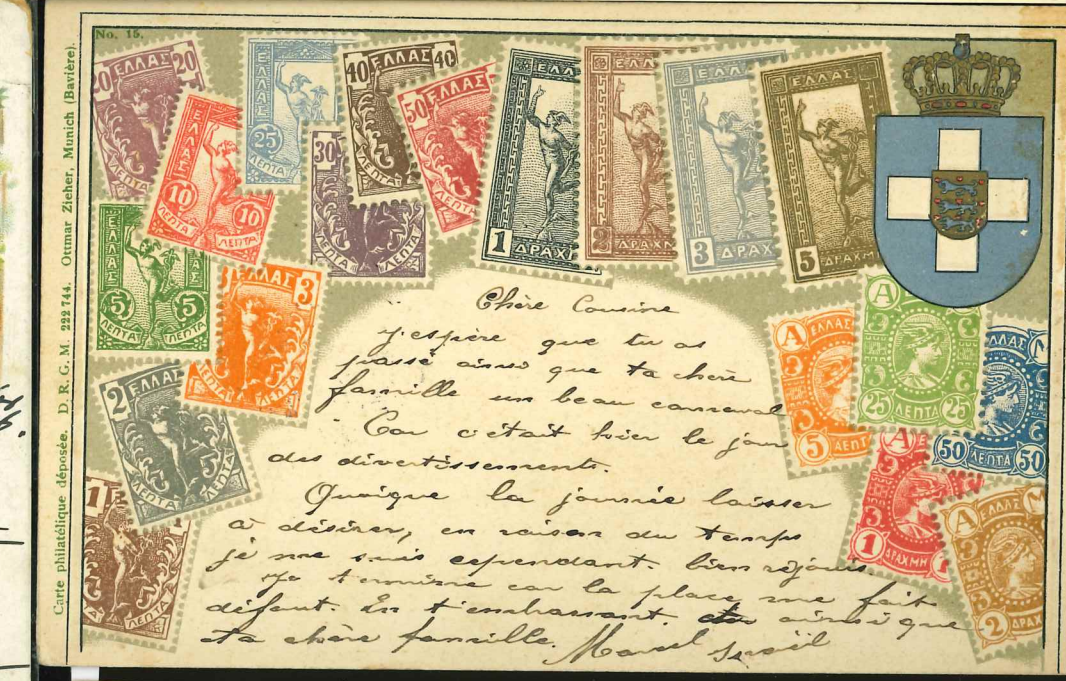 No. 15.
Carte philatélique déposée. D. R. G. M. 222 744. Ottmar Zieher, Munich (Bavière).
20 ΕΛΛΑΣ 20
ΛΕΠΤΑ
ΕΛΛΑΣ
10 10
ΛΕΠΤΑ ΛΕΠΤΑ
ΕΛΛΑΣ
25
ΛΕΠΤΑ
30
ΛΕΠΤΑ
40 ΕΛΛΑΣ 40
ΛΕΠΤΑ
50 ΕΛΛΑΣ
ΛΕΠΤΑ
ΕΛΛ
1 ΔΡΑΧ
ΕΛΛΑ
2 ΔΡΑΧΜ
ΕΛΛΑ
3 ΔΡΑΧ
ΕΛΛΑΣ
5 ΔΡΑΧΜΑ
ΕΛΛΑΣ
5 5
ΛΕΠΤΑ ΛΕΠΤΑ
ΕΛΛΑΣ 3
2 ΕΛΛΑΣ
ΛΕΠΤΑ ΛΕΠΤΑ
1
ΛΕΠΤΑ
Α ΕΛΛΑΣ
5 ΛΕΠΤ
Α
25 ΛΕΠΤΑ 25
ΕΛΛΑΣ
50 ΛΕΠΤΑ 50
Α
1 ΔΡΑΧΜΗ 1
Α ΕΛΛΑΣ
2 ΔΡΑΧ
Chère Cousine
j'espère que tu as
passé ainsi que ta chère
famille un beau carnaval
Car c'était hier le jour
des divertissements.
Quoique la journée laisser
à désirer, en raison du temps
je me suis cependant bien réjouis
Je termine car la place me fait
défaut. En t'embrassant ainsi que
ta chère famille.
Marcel